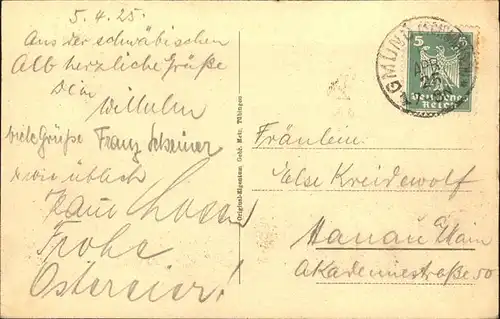 5.4.25.
Aus der schwäbischen
Alb herzliche Grüße
Dein
Wilhelm
viele Grüße Franz Scheiner
wie üblich
Frohe
Ostereier!
Original-Eigentum. Gebr. Metz, Tübingen
5 5
Deutsches
Reich
GMÜND
APR
25
Fräulein
Else Kreidewolf
Hanau a/Main
Akademiestraße 50